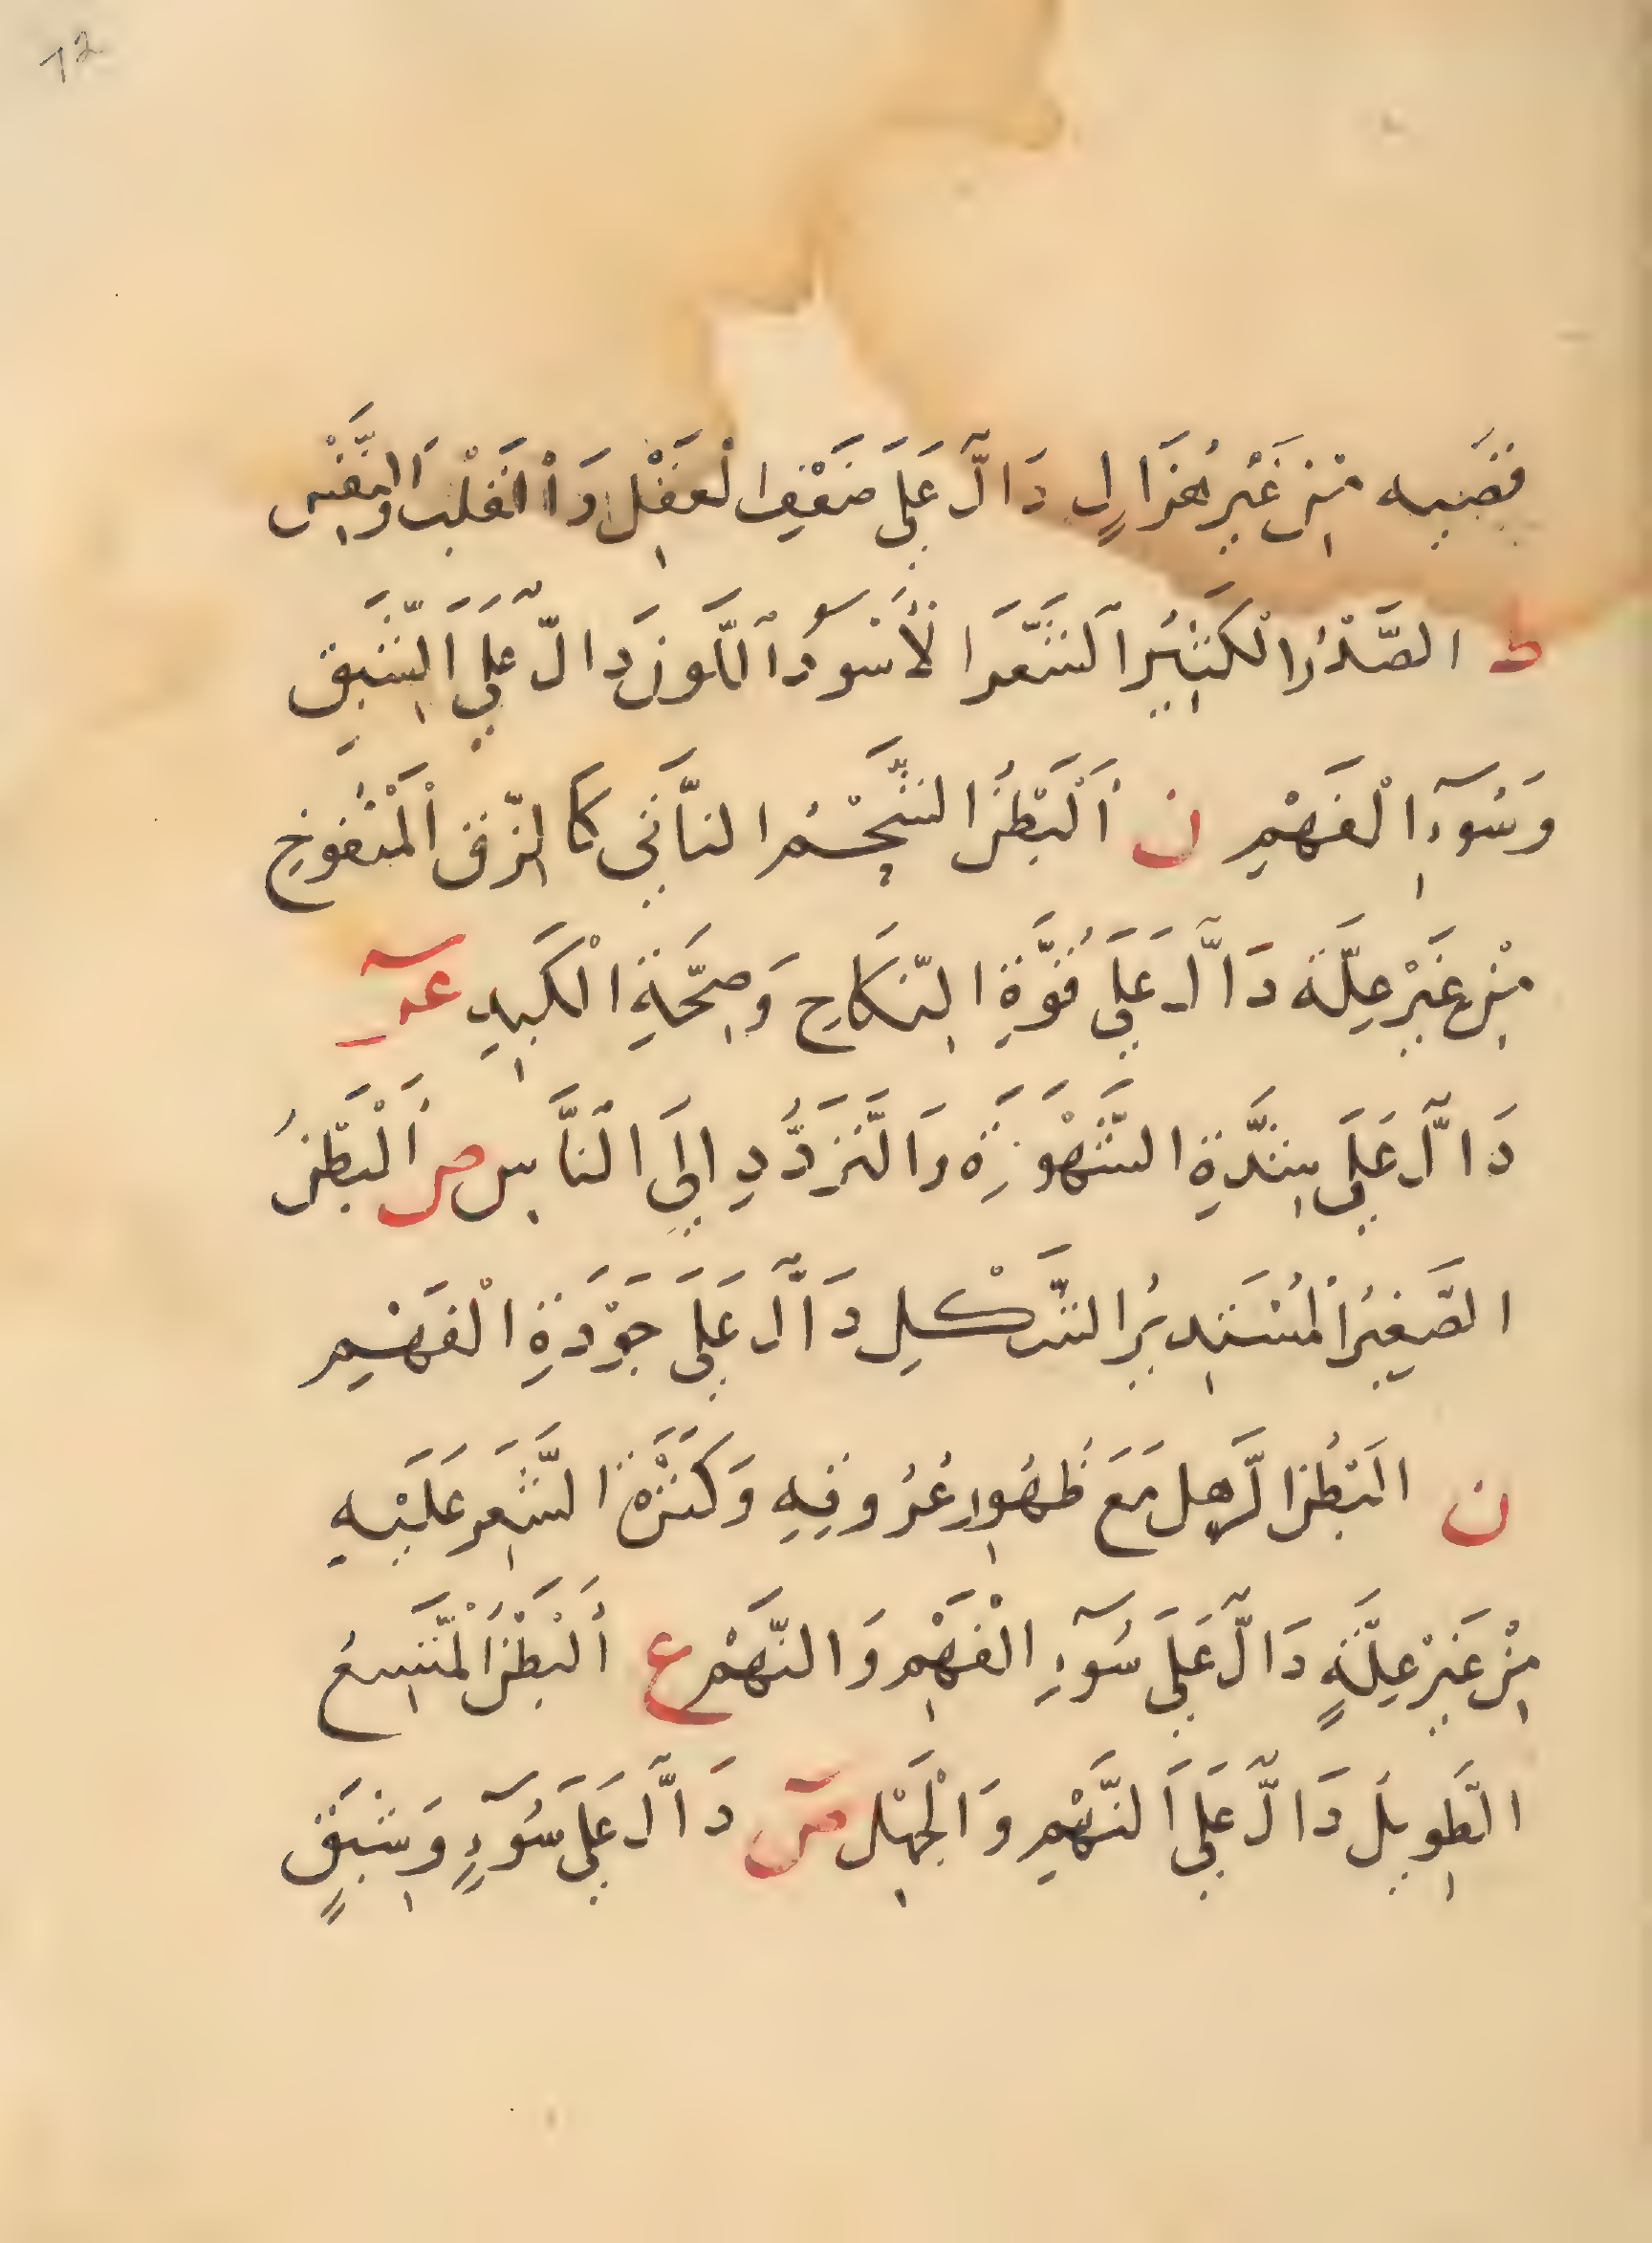 12
قصبه مِنْ غَيْرِ هُزَالٍ دَالٌّ عَلَى ضَعْفِ الْعَقْلِ وَالْقَلْبِ وَالنَّفْسِ
ط الصَّدْرُ الْكَثِيرُ الشَّعَرِ الْأَسْوَدُ اللَّوْنِ دَالٌّ عَلَى الشَّبَقِ
وَسُوۤءِ الْفَهْمِ ن اَلْبَطْنُ الشَّحْمُ النَّاتَى كَالزِّقِ الْمَنْفُوخِ
مِنْ غَيْرِ عِلَّة دَالٌّ عَلَى قُوَّةِ النِّكَاحِ وَصِحَّةِ الْكَبِدِ
دَالٌّ عَلَى شِدَّةِ الشَّهْوَةِ وَالتَّرَدُّدِ اِلَى النَّاسِ ص اَلْبَطْنُ
الصَّغِيرُ الْمُسْتَدِيرُ الشَّكْلِ دَالٌّ عَلَى جَوْدَةِ الْفَهْمِ
ن الْبَطْنُ الرَّهِل مَعَ ظُهُورِ عُرُوقِهِ وَكَثْرَةِ الشَّعَرِ عَلَيْهِ
مِنْ غَيْرِ عِلَّةٍ دَالٌّ عَلَى سُوۤءِ الْفَهْمِ وَالنَّهَمْ ع اَلْبَطْنُ الْمُتَّسِعُ
الطَّوِيلُ دَالٌّ عَلَى النَّهْمِ وَالْجَهْلِ ص دَالٌّ عَلَى سُوۤءٍ وَشَبَقٍ